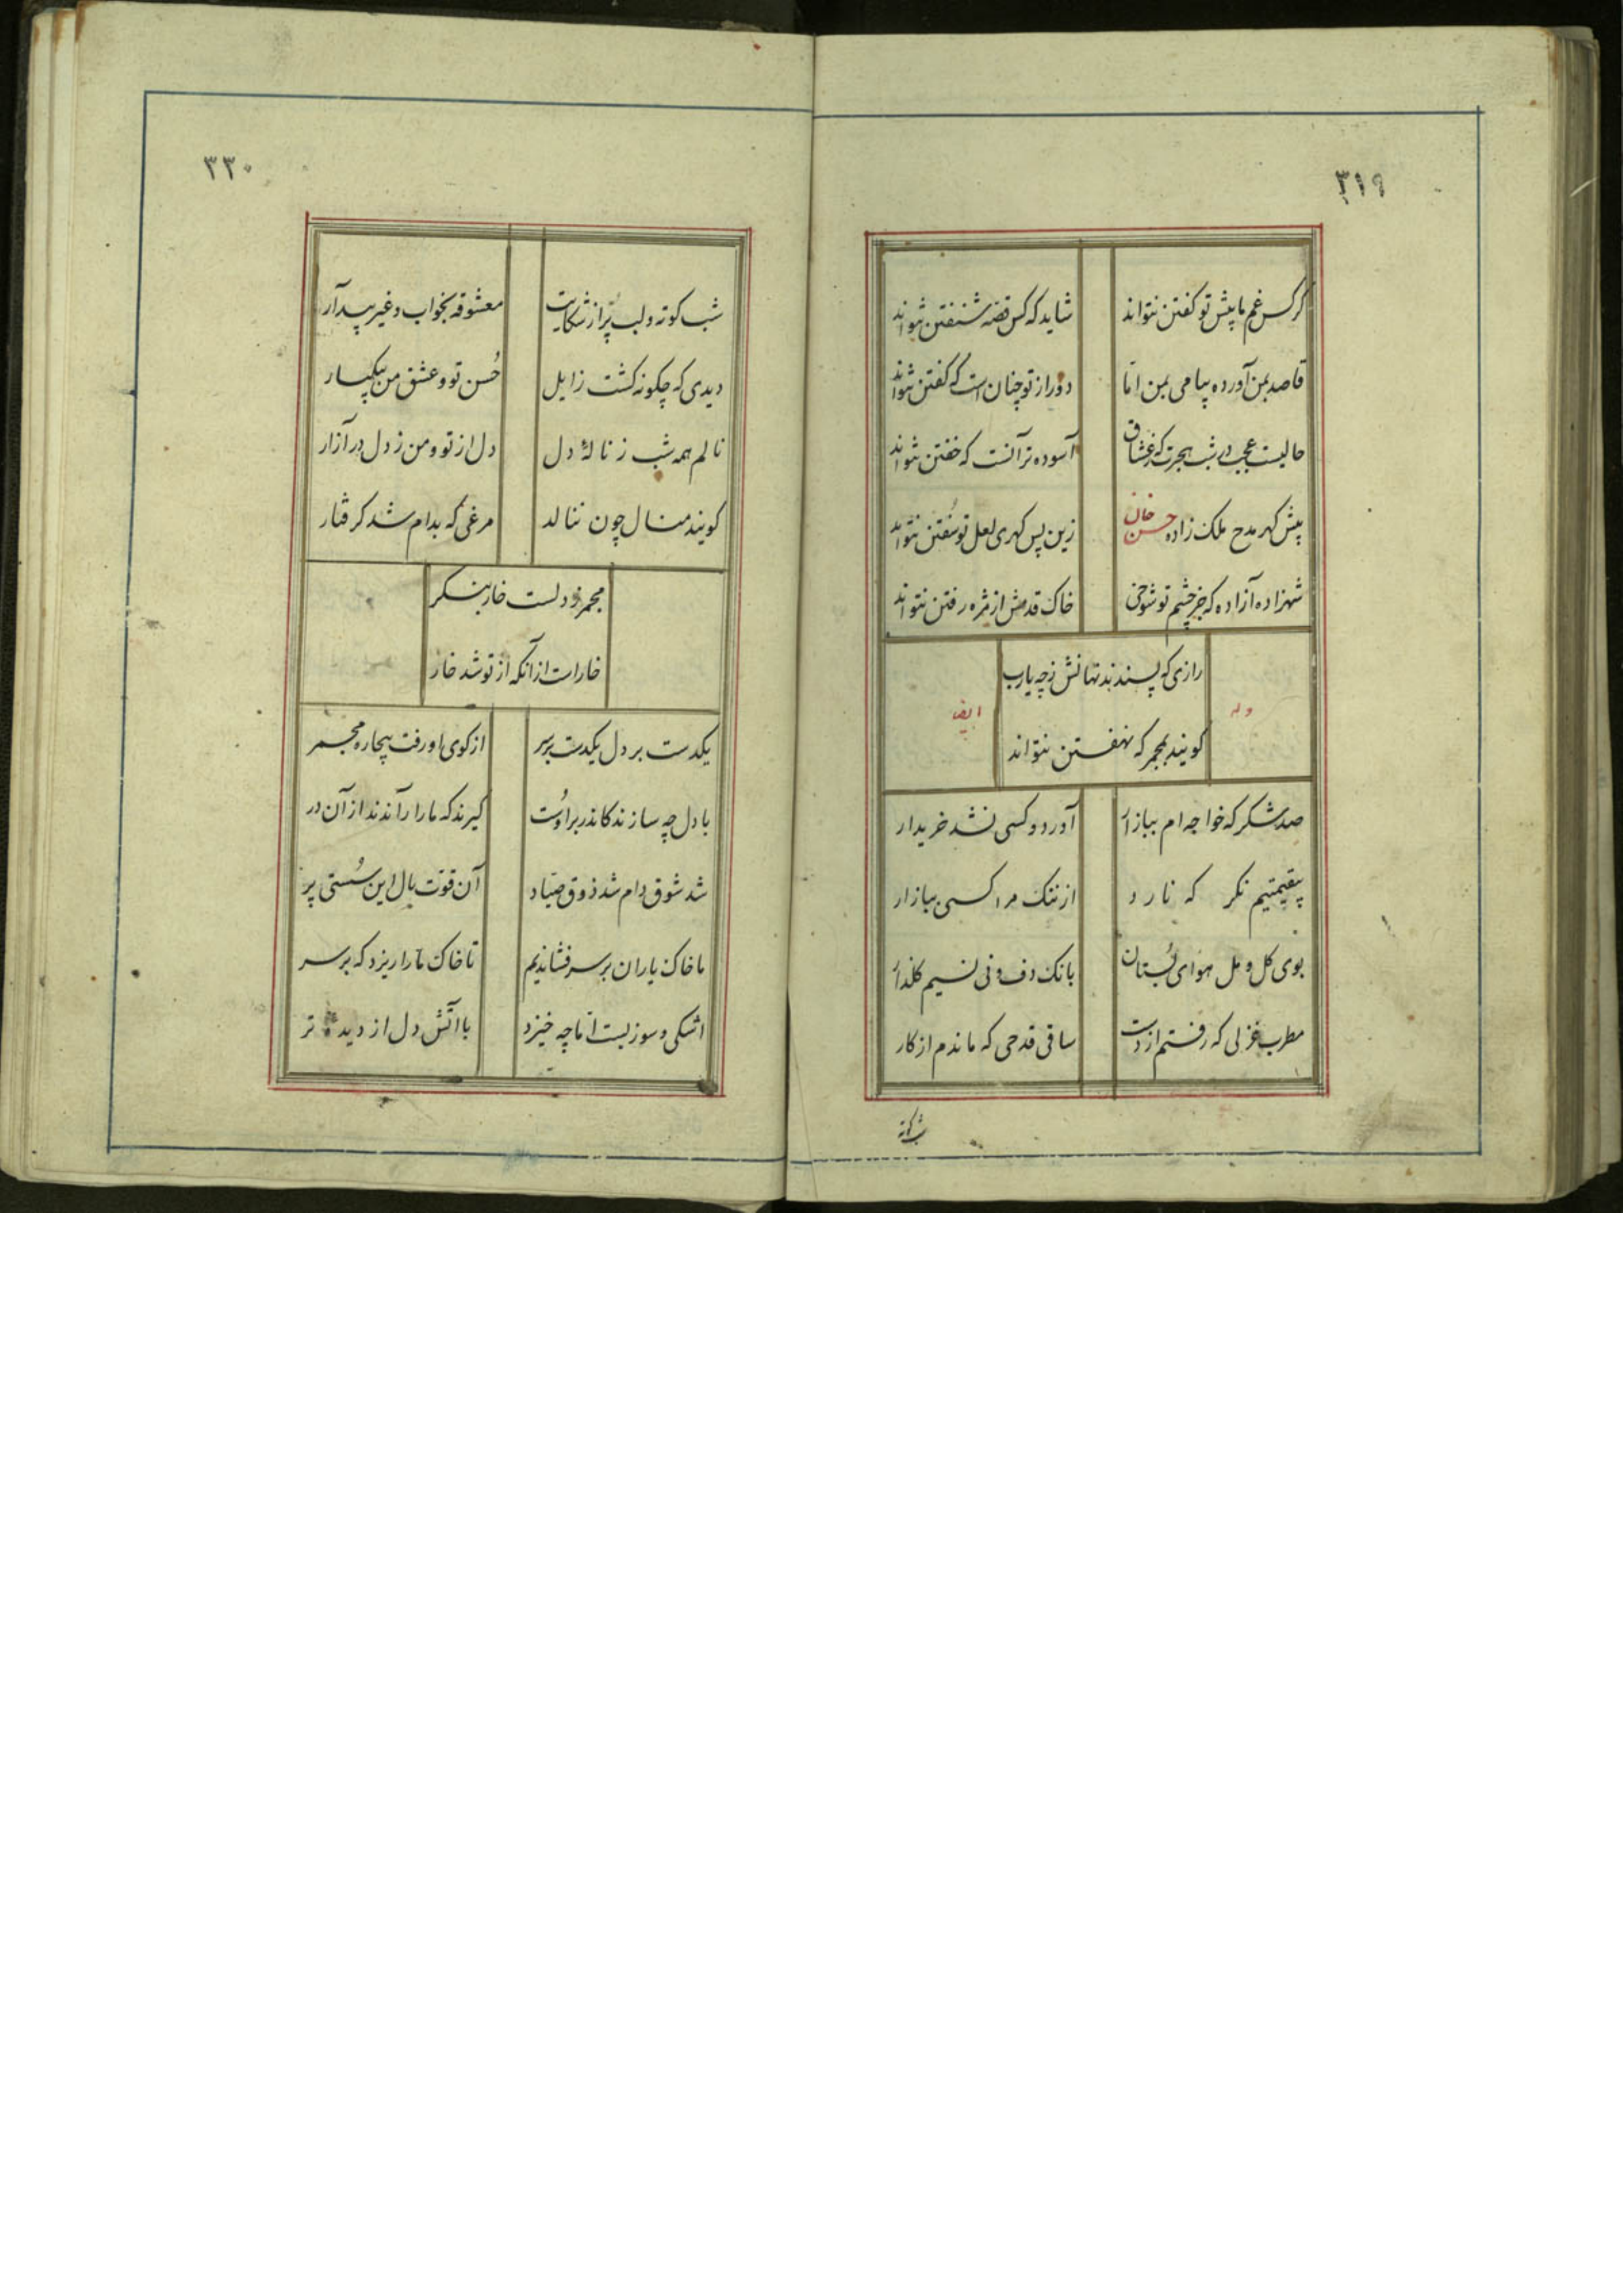 ۳۱۹
گر کس غم ما پیش تو گفتن نتواند
شاید که کس قصه شنفتن نتواند
قاصد بمن آورده پیامی بمن اما
دور از تو چنان است که گفتن نتواند
حالیست عجب در شب هجرت که ز عشاق
آسوده تر آنست که خفتن نتواند
پیش گهر مدح ملک زاده حسن خان
زین پس گهری لعل تو سفتن نتواند
شهزاده آزاده که جز چشم تو شوخی
خاک قدمش از مژه رفتن نتواند
رازی که پسندند نهانش ز چه یارب
گویند بمجمر که نهفتن نتواند
وله
ایضا
صد شکر که خواجه ام ببازار
آورد و کسی نشد خریدار
بیقیمتیم نگر که نارد
از ننگ مرا کسی ببازار
بوی گل و مل هوای بُستان
بانگ دف و نی نسیم گلزار
مطرب غزلی که رفتم از دست
ساقی قدحی که ماندم از کار
شب کوته
۳۲۰
شب کوته و لب پُر از شکایت
معشوقه بخواب و غیر بیدار
دیدی که چگونه گشت زایل
حُسن تو و عشق من بیکبار
نالم همه شب ز نالهٔ دل
دل از تو و من ز دل در آزار
گویند منال چون ننالد
مرغی که بدام شد گرفتار
مجمر ز دلست خار بنگر
خار است از آنکه از تو شد خار
یکدست بر دل یکدست بر سر
از کوی او رفت بیچاره مجمر
با دل چه سازند کاندر بر اوست
گیرند که ما را راندند از آن در
شد شوق دام شد ذوق صیاد
آن قوّت بال این سُستی پر
ما خاک یاران بر سر فشاندیم
تا خاک ما را ریزد که بر سر
اشکی و سوزیست اما چه خیزد
با آتش دل از دیدهٔ تر